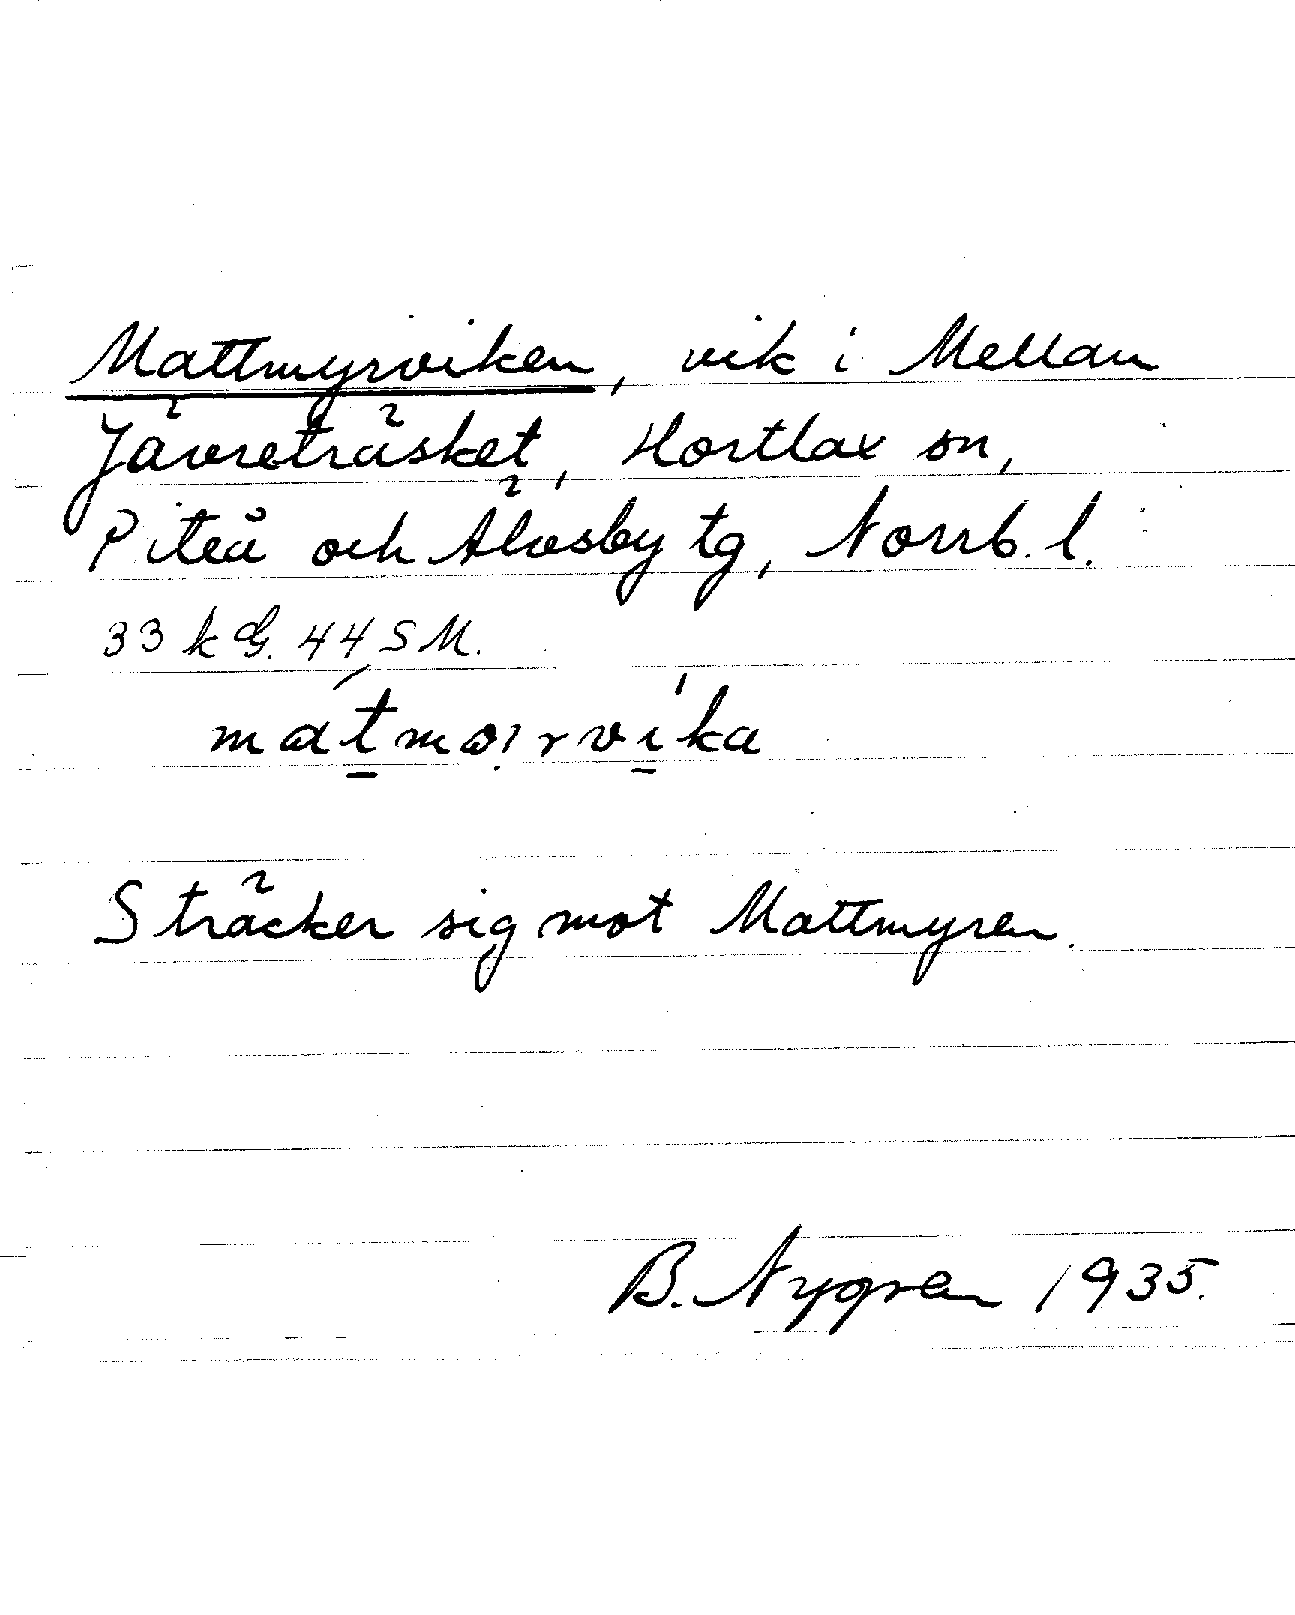 Mattmyrviken, vik i Mellan
Jävreträsket, Hortlax sn,
Piteå och Älvsby tg, Norrb. l.
33 k G. 44 S M.
Sträcker sig mot Mattmyren.
B. Nygren 1935.